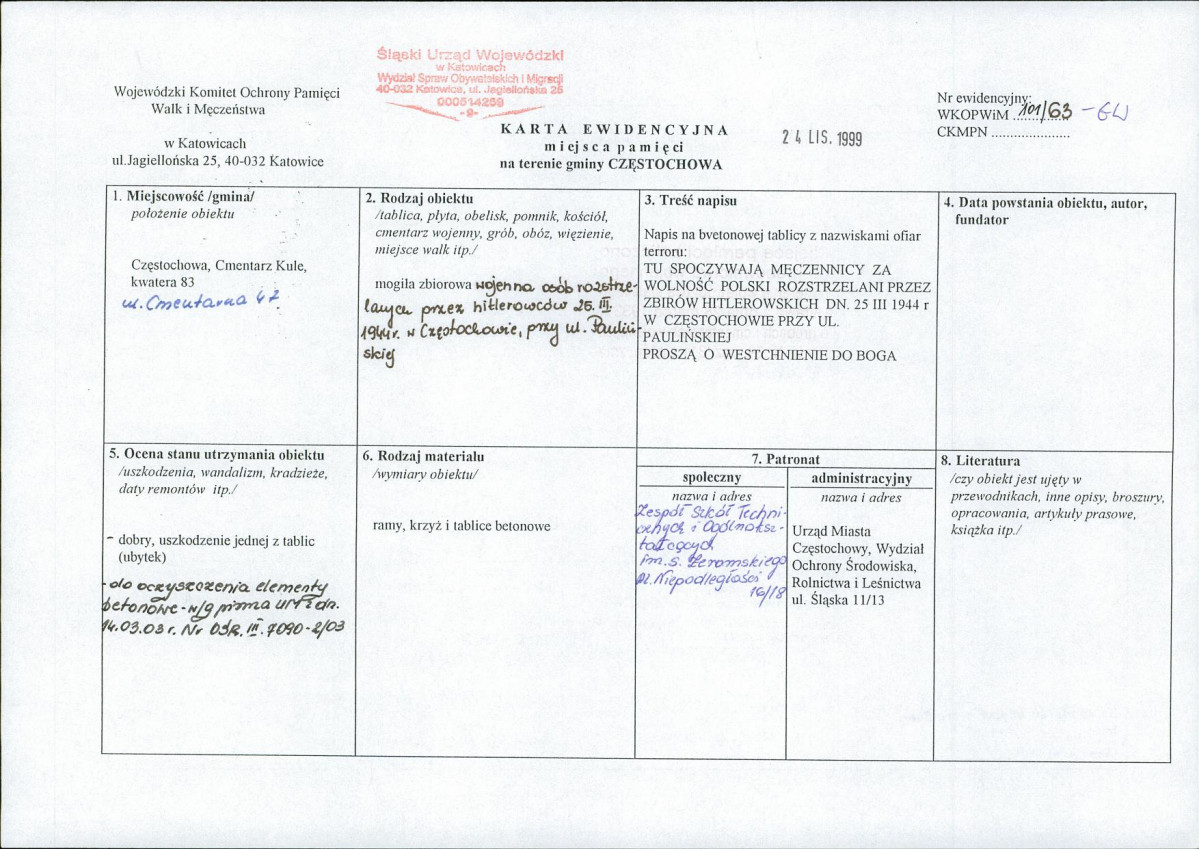 Śląski Urząd Wojewódzki
w Katowicach
Wydział Spraw Obywatelskich i Migracji
40-032 Katowice, ul. Jagiellońska 25
000514259
-9-
Wojewódzki Komitet Ochrony Pamięci
Walk i Męczeństwa
w Katowicach
ul.Jagiellońska 25, 40-032 Katowice
KARTA EWIDENCYJNA
miejsca pamięci
na terenie gminy CZĘSTOCHOWA
24 LIS. 1999
Nr ewidencyjny:
WKOPWiM ...101/63 - GW
CKMPN ......................
1. Miejscowość /gmina/
położenie obiektu
Częstochowa, Cmentarz Kule,
kwatera 83
ul. Cmentarna 47
2. Rodzaj obiektu
/tablica, płyta, obelisk, pomnik, kościół,
cmentarz wojenny, grób, obóz, więzienie,
miejsce walk itp./
mogiła zbiorowa wojenna osób rozstrze-
lanych przez hitlerowców 25.III.
1944r. w Częstochowie, przy ul. Pauliń-
skiej
3. Treść napisu
Napis na bvetonowej tablicy z nazwiskami ofiar
terroru:
TU SPOCZYWAJĄ MĘCZENNICY ZA
WOLNOŚĆ POLSKI ROZSTRZELANI PRZEZ
ZBIRÓW HITLEROWSKICH DN. 25 III 1944 r
W CZĘSTOCHOWIE PRZY UL.
PAULIŃSKIEJ
PROSZĄ O WESTCHNIENIE DO BOGA
4. Data powstania obiektu, autor,
fundator
5. Ocena stanu utrzymania obiektu
/uszkodzenia, wandalizm, kradzieże,
daty remontów itp./
- dobry, uszkodzenie jednej z tablic
(ubytek)
- do oczyszczenia elementy
betonowe - w/g pisma UM z dn.
14.03.03 r. Nr OŚR.III.7090-2/03
6. Rodzaj materiału
/wymiary obiektu/
ramy, krzyż i tablice betonowe
7. Patronat
społeczny
nazwa i adres
Zespół Szkół Techni-
cznych i Ogólnoksz-
tałcących
im. S. Żeromskiego
Al. Niepodległości
16/18
administracyjny
nazwa i adres
Urząd Miasta
Częstochowy, Wydział
Ochrony Środowiska,
Rolnictwa i Leśnictwa
ul. Śląska 11/13
8. Literatura
/czy obiekt jest ujęty w
przewodnikach, inne opisy, broszury,
opracowania, artykuły prasowe,
książka itp./